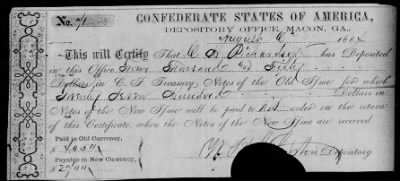 CONFEDERATE STATES OF AMERICA,
No. 71
DEPOSITORY OFFICE, MACON, GA.,
August 1864
This will Certify That has Deposited
in this Office Four Thousand & Fifty
Dollars in C. S. Treasury Notes of the Old Issue for which
Twenty Seven Hundred Dollars in
Notes of the New Issue will be paid to her order on the return
of this Certificate, when the Notes of the New Issue are received
Paid in Old Currency,
$ 4,050
Depositary.
Payable in New Currency.
$ 2700